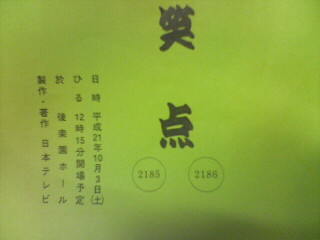 笑点
2185
2186
日時 平成21年10月3日(土)
ひる 12時15分開場予定
於 後楽園ホール
製作・著作 日本テレビ